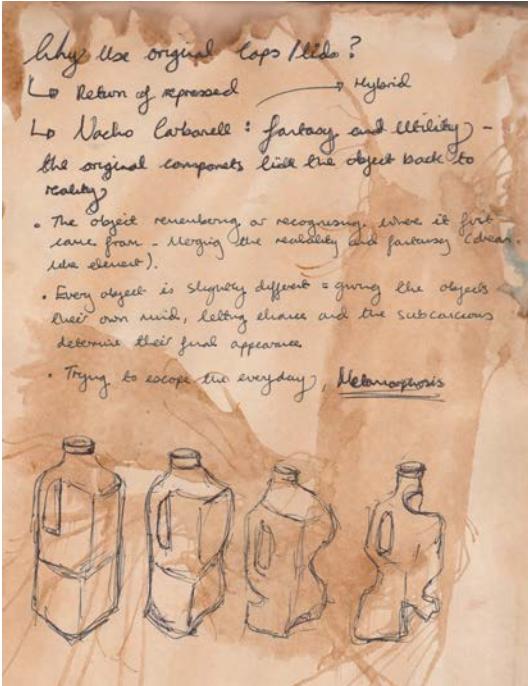 Why Use original Caps/lids?
↳ Return of repressed → Hybrid
↳ Nacho Carbonell : fantasy and Utility -
the original componets link the object back to
reality
• The object remembering or recognising where it first
came from - Merging the reality and fantasy (dream
like element).
• Every object is slightly different = giving the objects
their own mind, letting chance and the subconcious
determine their final appearance
• Trying to escape the everyday, Metamorphosis